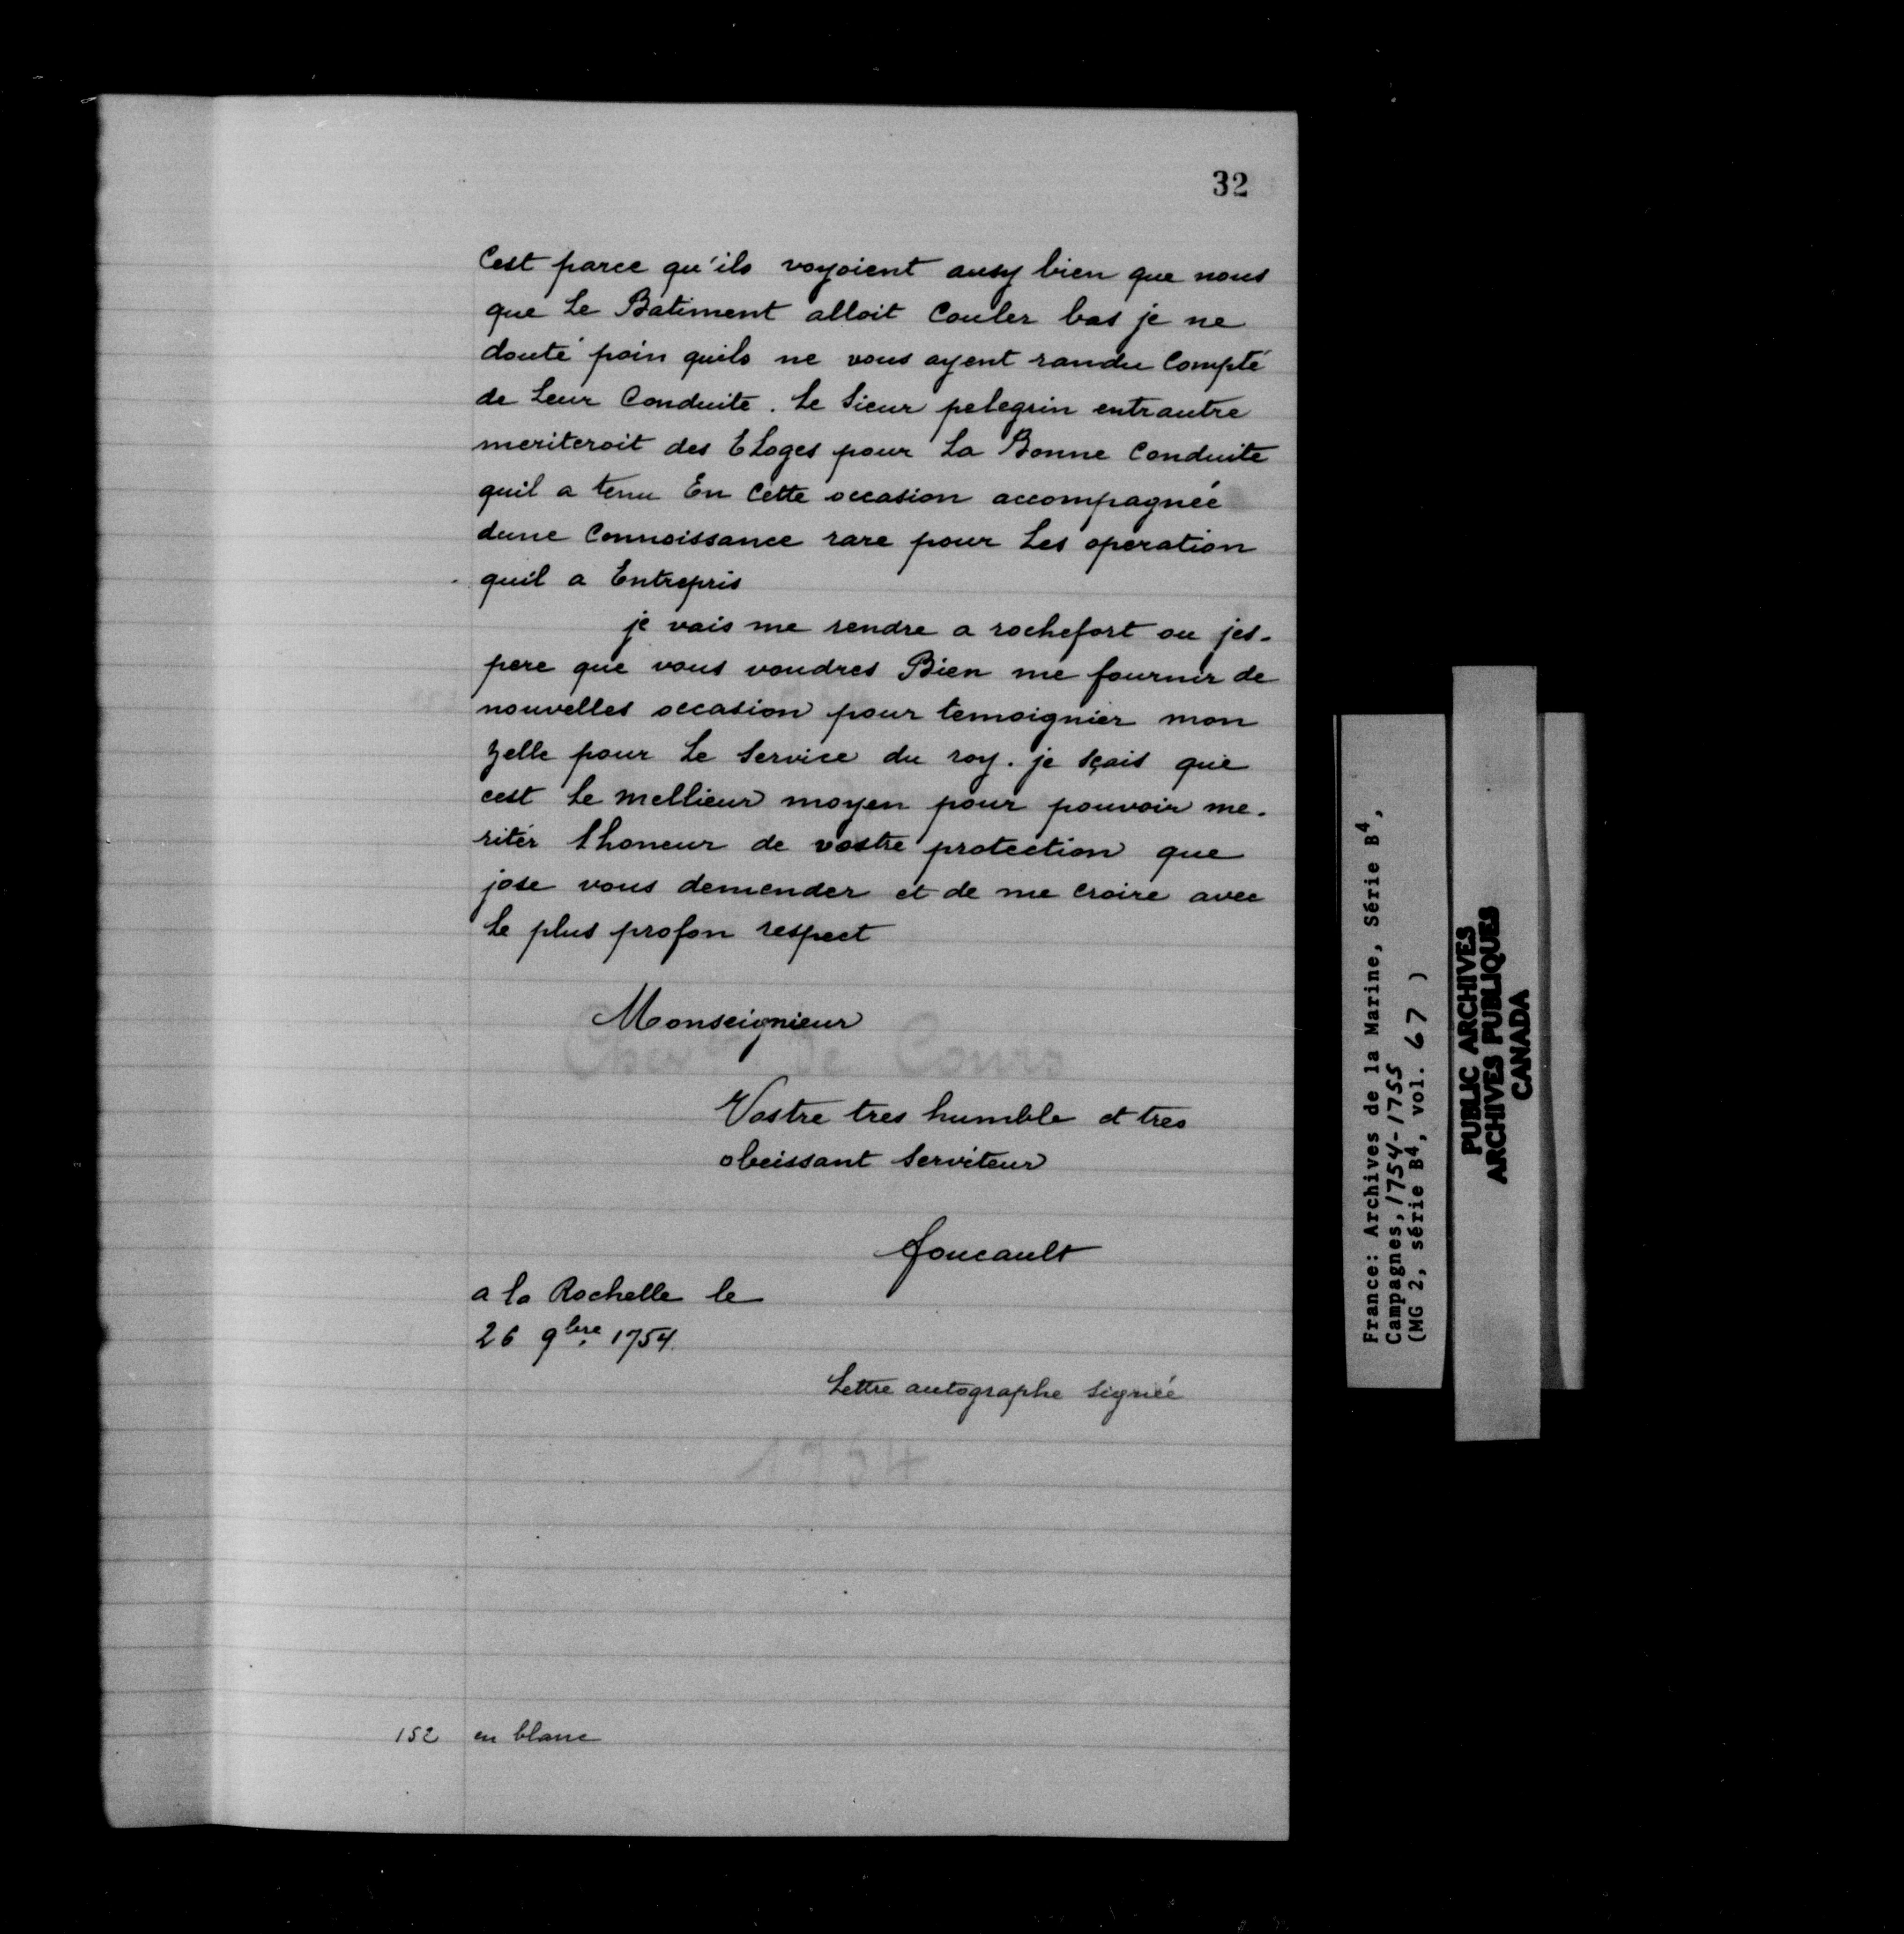 32
Cest parce qu'ils voyoient ausy bien que nous
que Le Batiment alloit Couler bas je ne
douté poin quils ne vous ayent randu Compté
de Leur Conduite. Le Sieur pelegrin entrautre
meriteroit des Eloges pour La Bonne Conduite
quil a tenu En Cette occasion accompagneé
dune Connoissance rare pour Les operation
quil a Entrepris
je vais me rendre a rochefort ou jes-
pere que vous voudres Bien me fournir de
nouvelles occasion pour temoignier mon
zelle pour Le Service du roy. je sçais que
cest Le mellieur moyen pour pouvoir me-
riter Lhoneur de vostre protection que
jose vous demender et de me croire avec
Le plus profon respect
Monseignieur
Vostre tres humble et tres
obeissant Serviteur
foucault
a la Rochelle le
26 9bre 1754.
Lettre autographe signeé
1754
152 en blanc
France: Archives de la Marine, Série B4,
Campagnes, 1754-1755
(MG 2, série B4, vol. 67 )
PUBLIC ARCHIVES
ARCHIVES PUBLIQUES
CANADA